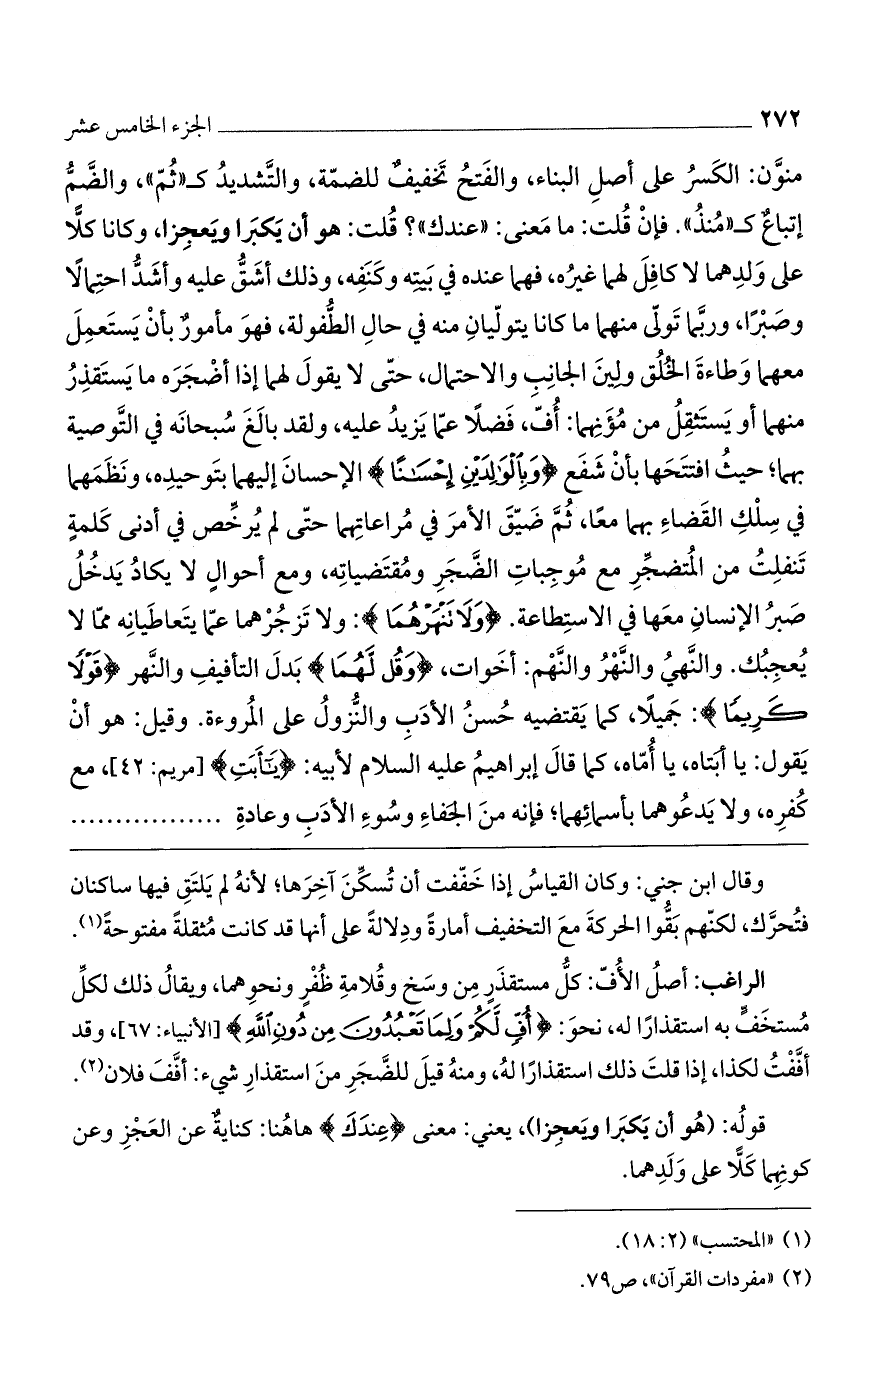 ٢٧٢ الجزء الخامس عشر
منوَّن: الكَسرُ على أصلِ البناء، والفَتحُ تَخفيفٌ للضمّة، والتَّشديدُ كـ«ثُمّ»، والضَّمُّ
إتباعٌ كـ«مُنذُ». فإنْ قُلت: ما مَعنى: «عندك»؟ قُلت: هو أن يَكبَرا ويَعجِزا، وكانا كلًّا
على وَلدِهما لا كافِلَ لهما غيرُه، فهما عنده في بَيتِه وكَنَفِه، وذلك أشَقُّ عليه وأشَدُّ احتِمالًا
وصَبْرًا، وربَّما تَولّى منهما ما كانا يتولّيان منه في حالِ الطُّفولة، فهوَ مأمورٌ بأنْ يَستَعمِلَ
معهما وَطاءةَ الخُلُق ولِينَ الجانِبِ والاحتمال، حتّى لا يقولَ لهما إذا أضْجَرَه ما يَستَقذِرُ
منهما أو يَستَثقِلُ من مُؤَنِهما: أُفّ، فَضلًا عمّا يَزيدُ عليه، ولقد بالَغَ سُبحانَه في التَّوصية
بهما؛ حيثُ افتتَحَها بأنْ شَفَع ﴿وَبِٱلْوَٰلِدَيْنِ إِحْسَـٰنًا﴾ الإحسانَ إليهما بتَوحيدِه، ونَظَمَهما
في سِلْكِ القَضاءِ بهما معًا، ثُمَّ ضَيّقَ الأمرَ في مُراعاتِهما حتّى لم يُرخِّص في أدنى كَلمةٍ
تَنفلِتُ من المُتضجِّرِ مع مُوجِباتِ الضَّجَرِ ومُقتَضياتِه، ومع أحوالٍ لا يكادُ يَدخُلُ
صَبرُ الإنسانِ معَها في الاستِطاعة. ﴿وَلَا نَنْهَرْهُمَا﴾: ولا تَزجُرْهما عمّا يتَعاطَيانِه ممّا لا
يُعجِبُك. والنَّهيُ والنَّهْرُ والنَّهْم: أخَوات، ﴿وَقُل لَّهُمَا﴾ بَدلَ التأفيفِ والنَّهر ﴿قَوْلًا
كَرِيمًا﴾: جَميلًا، كما يَقتضيه حُسنُ الأدَبِ والنُّزولُ على المُروءة. وقيل: هو أنْ
يَقول: يا أبَتاه، يا أُمّاه، كما قالَ إبراهيمُ عليه السلام لأبيه: ﴿يَٰٓأَبَتِ﴾ [مريم: ٤٢]، مع
كُفرِه، ولا يَدعُوهما بأسمائِهما؛ فإنه منَ الجَفاءِ وسُوءِ الأدَبِ وعادةِ .................
وقال ابن جني: وكان القياسُ إذا خَفّفت أن تُسكِّنَ آخِرَها؛ لأنهُ لم يَلتَقِ فيها ساكنان
فتُحرَّك، لكنّهم بَقُّوا الحركةَ معَ التخفيف أمارةً ودِلالةً على أنها قد كانت مُثقلةً مفتوحةً(١).
الراغب: أصلُ الأُفّ: كلُّ مستقذَرٍ مِن وسَخٍ وقُلامةِ ظُفْرٍ ونحوِهما، ويقالُ ذلك لكلِّ
مُستخَفٍّ به استقذارًا له، نحوَ: ﴿أُفٍّ لَّكُمْ وَلِمَا تَعْبُدُونَ مِن دُونِ ٱللَّهِ﴾ [الأنبياء: ٦٧]، وقد
أفَّفْتُ لكذا، إذا قلتَ ذلك استقذارًا لهُ، ومنهُ قيلَ للضَّجَرِ منَ استقذارِ شيء: أفَّفَ فلان(٢).
قولُه: (هُو أن يَكبَرا ويَعجِزا)، يعني: معنى ﴿عِندَكَ﴾ هاهُنا: كنايةٌ عن العَجْزِ وعن
كونِهما كَلًّا على وَلَدِهما.
(١) «المحتسب» (٢: ١٨).
(٢) «مفردات القرآن»، ص٧٩.